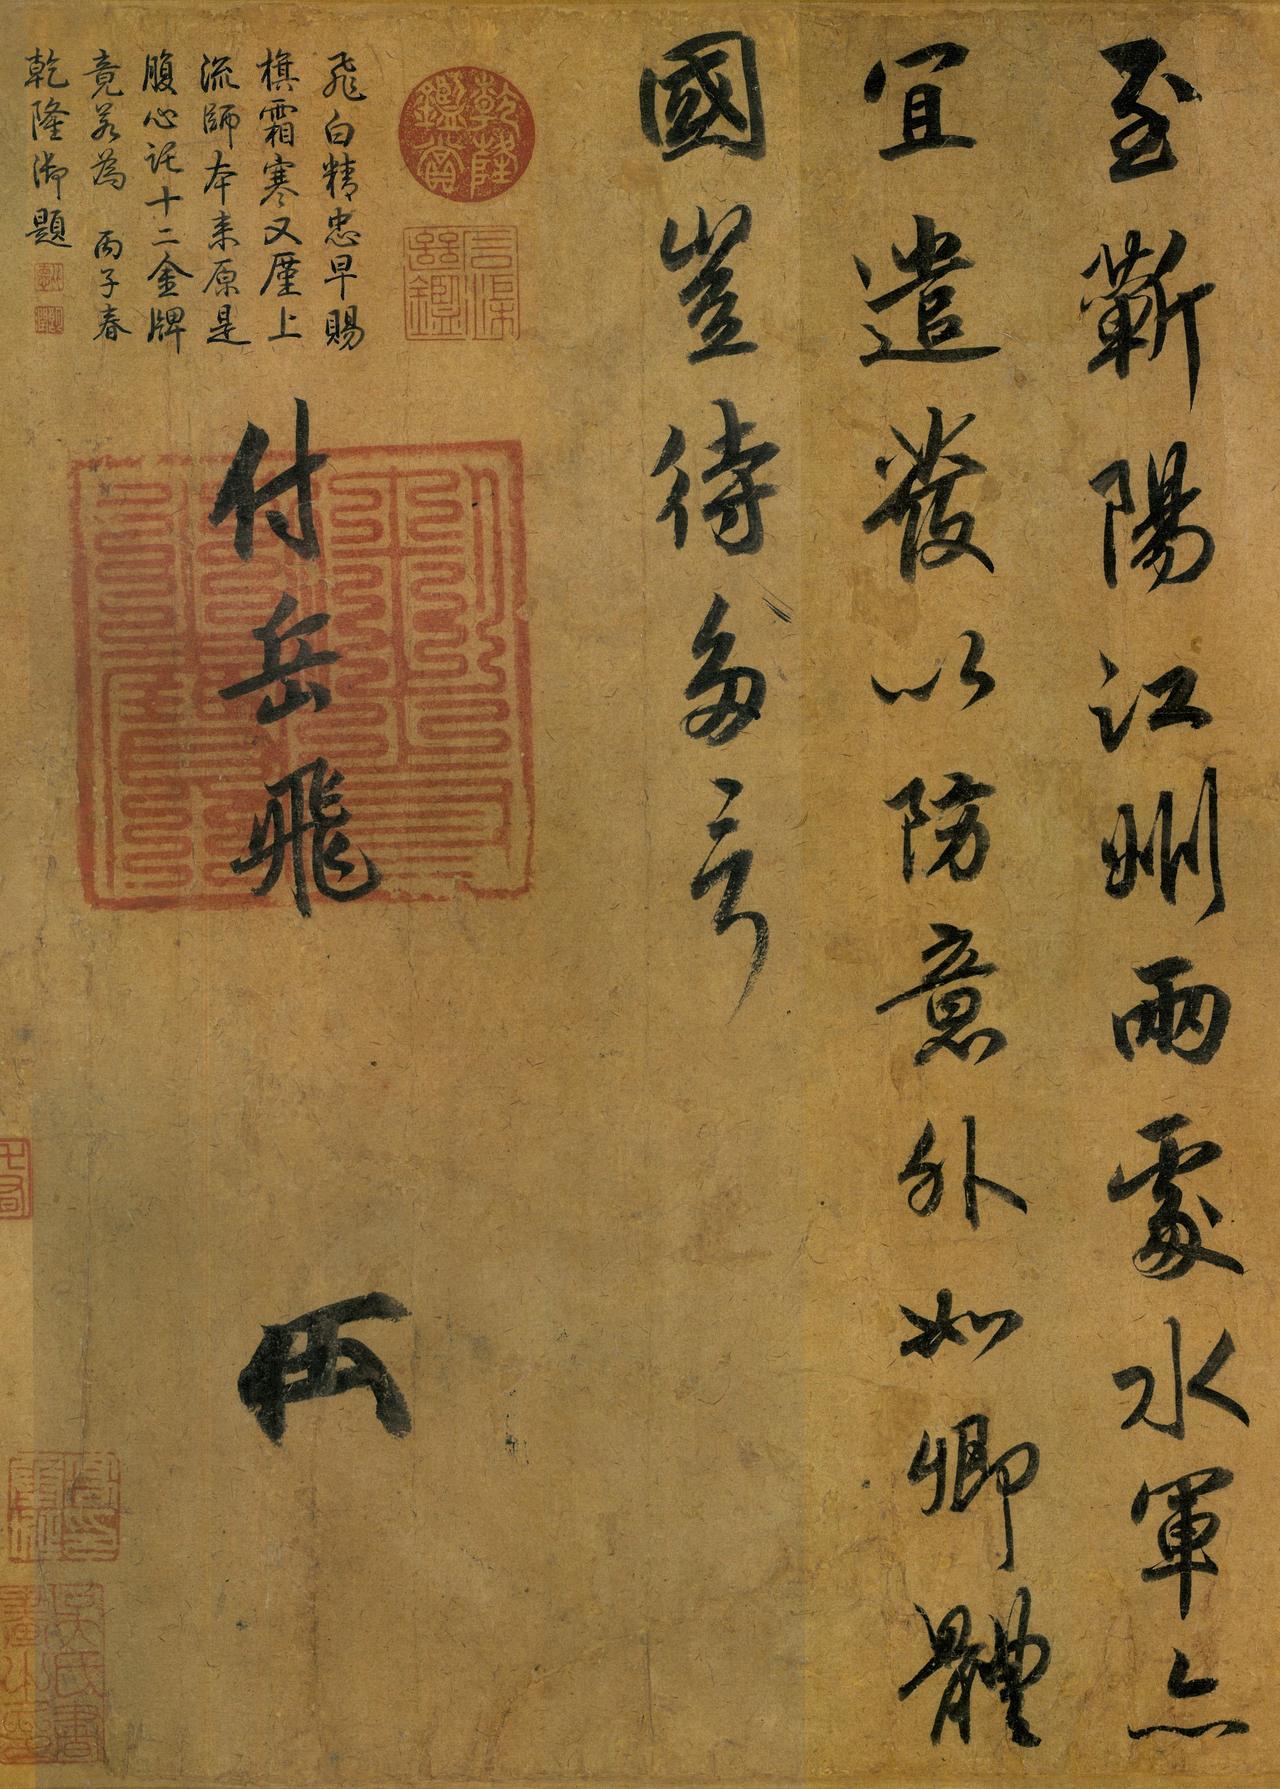 至蘄陽江州兩處水軍亦
宜遣發以防意外如卿體
國豈待多言
付岳飛
飛白精忠早賜
旗霜寒又厪上
流師本來原是
腹心託十二金牌
竟若為 丙子春
乾隆御題
乾隆鑑賞